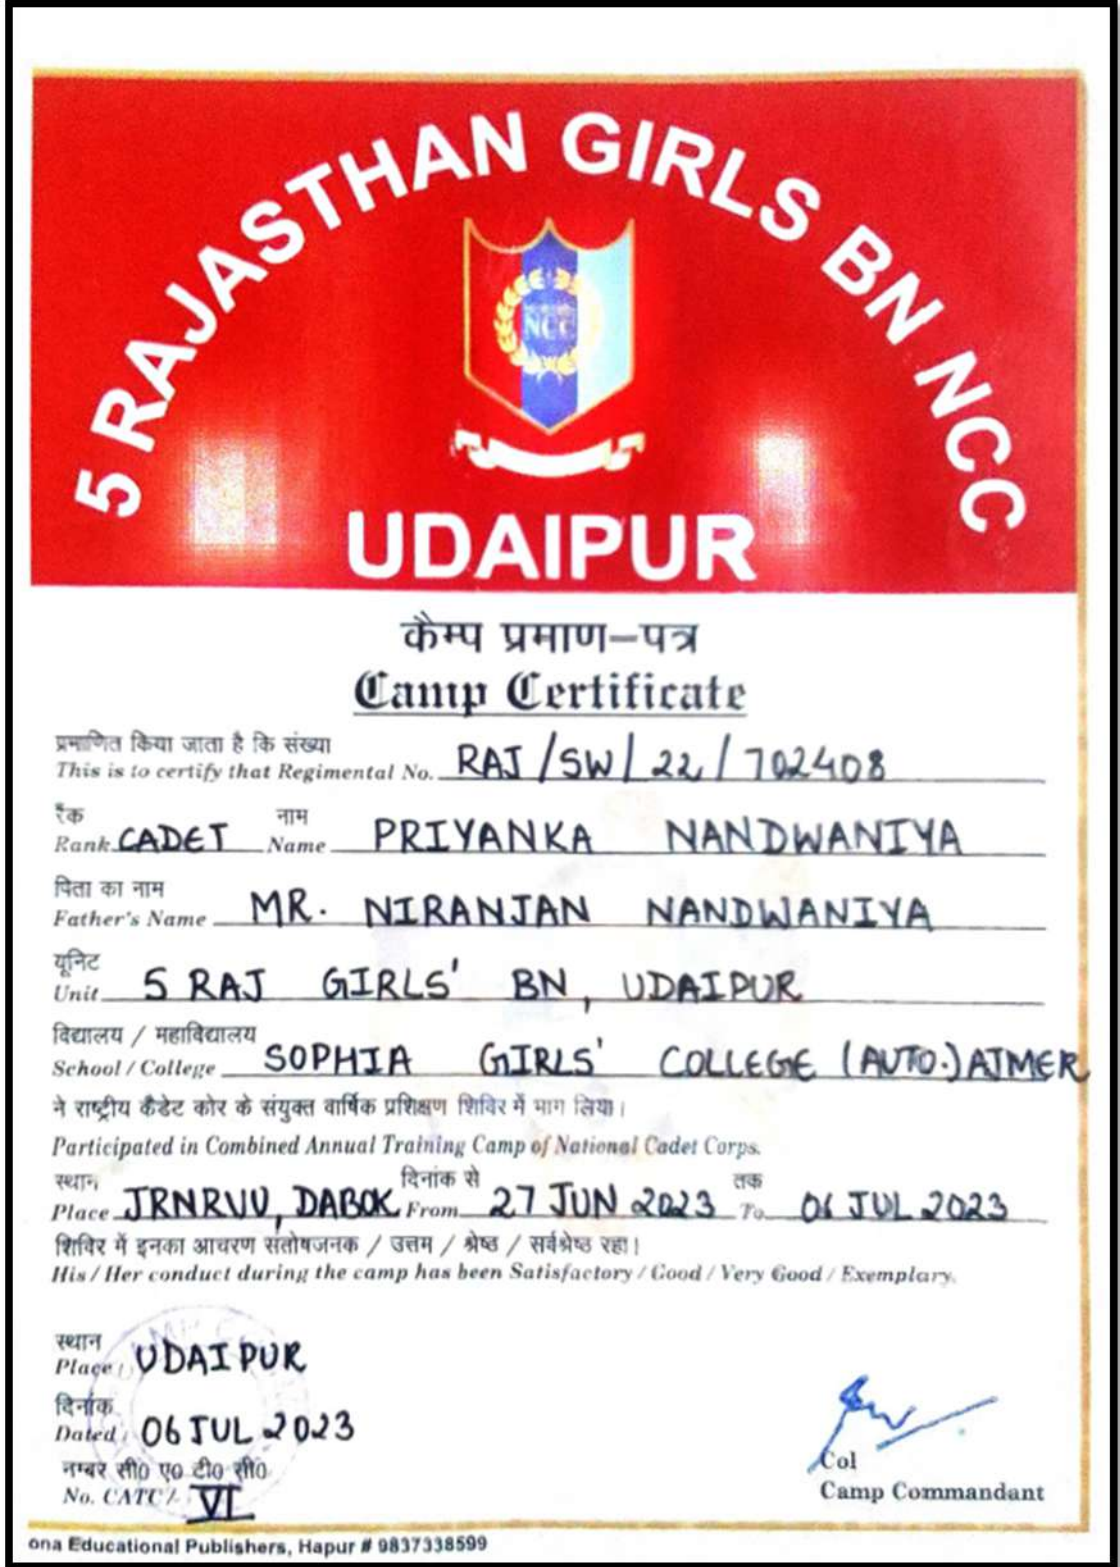 5 RAJASTHAN GIRLS BN NCC
NCC
UDAIPUR
कैम्प प्रमाण-पत्र
Camp Certificate
प्रमाणित किया जाता है कि संख्या
This is to certify that Regimental No. RAJ/SW/22/702408
रैंक नाम
Rank CADET Name PRIYANKA NANDWANIYA
पिता का नाम
Father's Name MR. NIRANJAN NANDWANIYA
यूनिट
Unit 5 RAJ GIRLS' BN, UDAIPUR
विद्यालय / महाविद्यालय
School / College SOPHIA GIRLS' COLLEGE (AUTO.) AJMER
ने राष्ट्रीय कैडेट कोर के संयुक्त वार्षिक प्रशिक्षण शिविर में भाग लिया।
Participated in Combined Annual Training Camp of National Cadet Corps.
स्थान दिनांक से तक
Place JRNRVU, DABOK From 27 JUN 2023 To 06 JUL 2023
शिविर में इनका आचरण संतोषजनक / उत्तम / श्रेष्ठ / सर्वश्रेष्ठ रहा।
His / Her conduct during the camp has been Satisfactory / Good / Very Good / Exemplary.
स्थान
Place : UDAIPUR
दिनांक
Dated : 06 JUL 2023
नम्बर सी0 ए0 टी0 सी0
No. CATC/- VI
Col
Camp Commandant
ona Educational Publishers, Hapur # 9837338599